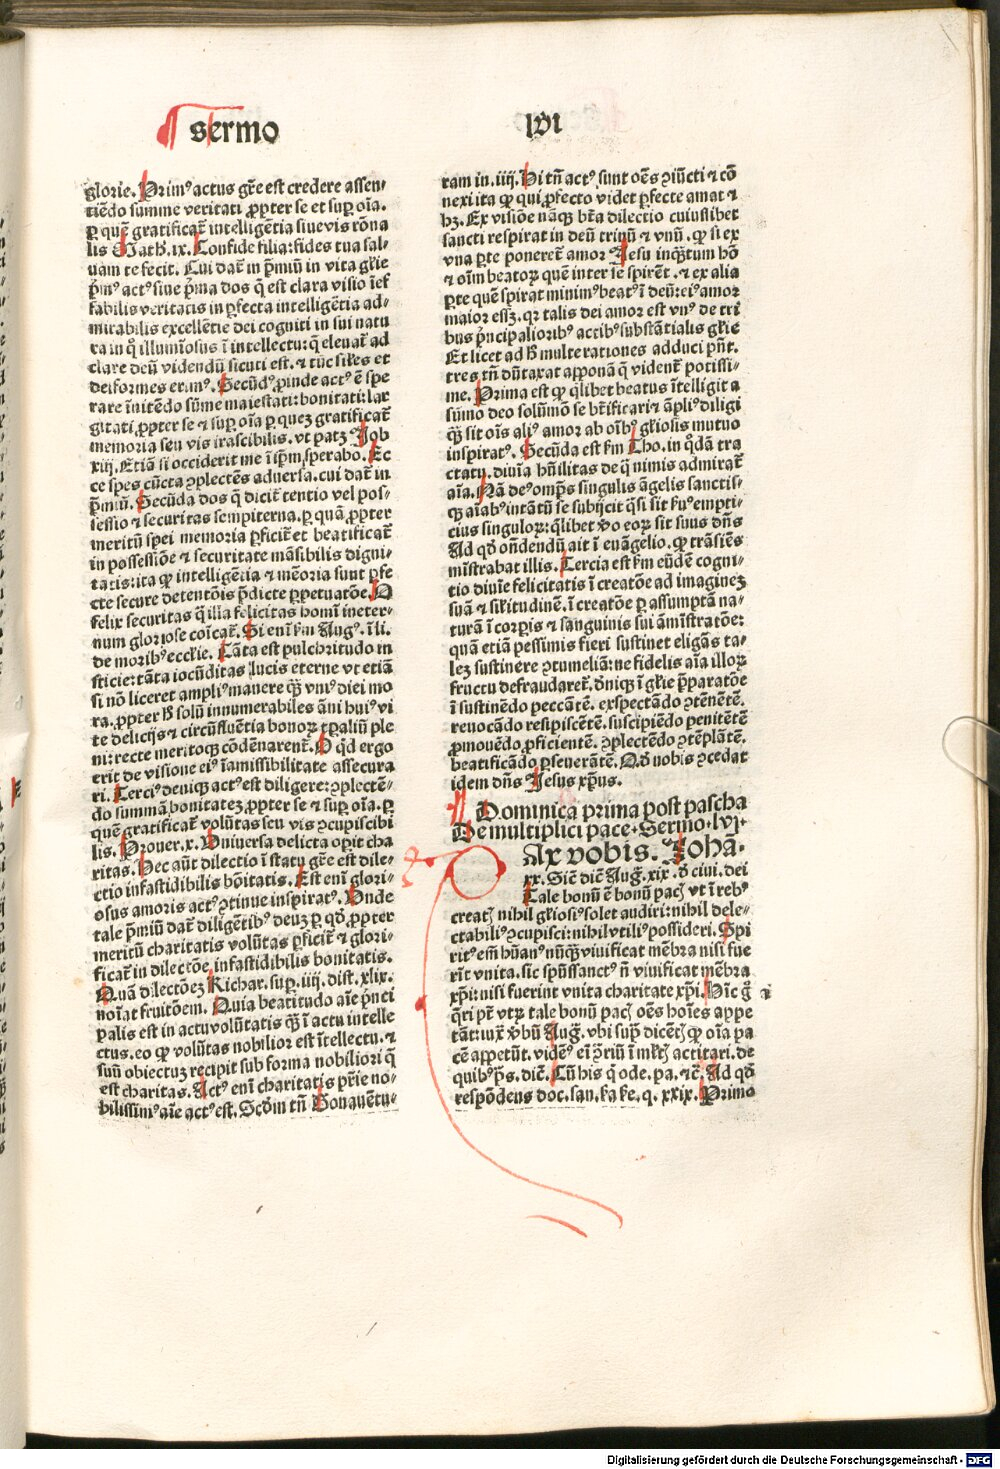 sermo
lvi
glorie. Primꝰ actus gr̄e est credere assen⸗
tiēdo summe veritati ꝓpter se et suꝑ oīa.
ꝑ quē gratificat̄ intelligētia siue vis rōna
lis Math. ix. Confide filia: fides tua sal⸗
uam te fecit. Cui dat̄ in p̄miū in vita gl̄ie
p̄mꝰ actꝰ siue p̄ma dos q̄ est clara visio īef
fabilis veritatis in ꝑfecta intelligētia ad⸗
mirabilis excellētie dei cogniti in sui natu
ra in q̊ illumīosus ī intellectu: q̄ eleuat̄ ad
clare deū videndū sicuti est. ⁊ tūc sil̄es et
deiformes erimꝰ. Secūdꝰ ꝓinde actꝰ ē spe
rare īnitēdo sūme maiestati: bonitati: lar
gitati ꝓpter se ⁊ suꝑ oīa ꝑ quez gratificat̄
memoria seu vis irascibilis. vt patꝫ Job
xiij. Etiā si occiderit me ī ip̄m sperabo. Ec
ce spes cūcta ꝯplectēs aduersa. cui dat̄ in
p̄miū. Secūda dos q̄ dicit̄ tentio vel pos⸗
sessio ⁊ securitas sempiterna. ꝑ quā ꝓpter
meritū spei memoria ꝑficit̄ et beatificat̄
in possessiōe ⁊ securitate māsibilis digni⸗
tatis: ita ꝙ intelligētia ⁊ mēoria sunt ꝑfe
cte secure detentōis p̄dicte ꝑpetuatōe. O
felix securitas q̄ illa felicitas homī ineter⸗
num gloriose coīcat̄. Si enī ẜm Augꝰ. ī li.
de moribꝰ eccl̄ie. Tāta est pulchritudo iu
sticie: tāta iocūditas lucis eterne vt etiā
si nō liceret ampliꝰ manere qꝫ vniꝰ diei mo
ra. ꝓpter h̄ solū innumerabiles āni huiꝰ vi
te delicijs ⁊ circūfluētia bonoꝝ tꝑaliū ple
ni: recte meritoqꝫ cōdēnarent̄. O qͥd ergo
erit de visione eiꝰ īamissibilitate assecura
ri. Terciꝰ deniqꝫ actꝰ est diligere: ꝯplectē⸗
do summā bonitatez ꝓpter se ⁊ suꝑ oīa. ꝑ
quē gratificat̄ volūtas seu vis ꝯcupiscibi
lis. Prouer. x. Vniuersa delicta oꝑit cha
ritas. Hec aūt dilectio ī statu gr̄e est dile⸗
ctio infastidibilis bōitatis. Est enī glori⸗
osus amoris actꝰ ꝯtinue inspiratꝰ. Vnde
tale p̄miū dat̄ diligētibꝰ deuz ꝑ qd̄ ꝓpter
meritū charitatis volūtas ꝑficit̄ ⁊ glori⸗
ficat̄ in dilectōe infastidibilis bonitatis.
Quā dilectōez Richar. suꝑ. iiij. dist. xlix.
noīat fruitōem. Quia beatitudo aīe p̄nci
palis est in actu volūtatis qꝫ ī actu intelle
ctus. eo ꝙ volūtas nobilior est ītellectu. ⁊
suū obiectuz recipit sub forma nobiliori q̄
est charitas. Actꝰ enī charitatis pr̄ie no⸗
bilissimꝰ aīe actꝰ est. Scd̄m tn̄ Bonauētu⸗
ram in. iiij. Hi tn̄ actꝰ sunt oēs ꝯiūcti ⁊ cō
nexi ita ꝙ qui ꝑfecto videt ꝑfecte amat ⁊
hꝫ. Ex visiōe nāqꝫ bt̄a dilectio cuiuslibet
sancti respirat in deū trinū ⁊ vnū. ꝙ si ex
vna ꝑte poneret̄ amor Jesu inqꝫtum hō
⁊ oīm beatoꝝ quē inter se spirēt. ⁊ ex alia
ꝑte quē spirat minimꝰ beatꝰ ī deū: eiꝰ amor
maior essꝫ. qꝛ talis dei amor est vnꝰ de tri
bus p̄ncipalioribꝰ actibꝰ substātialis gl̄ie
Et licet ad h̄ multe rationes adduci pn̄t.
tres tn̄ dūtaxat apponā q̄ vident̄ potissi⸗
me. Prima est ꝙ qͥlibet beatus ītelligit a
sūmo deo solūmō se bt̄ificari ⁊ āpliꝰ diligi
qꝫ sit oīs aliꝰ amor ab oībꝰ gl̄iosis mutuo
inspiratꝰ. Secūda est ẜm Tho. in qͦdā tra
ctatu. diuīa hūilitas de q̄ nimis admirat̄
aīa. Nā deꝰ omp̄s singulis āgelis sanctis⸗
qꝫ aīabꝰ intātū se subijcit q̄si sit ẜuꝰ empti⸗
cius singuloꝝ: qͥlibet v̊o eoꝝ sit suus dn̄s
Ad qd̄ on̄dendū ait ī euāgelio. ꝙ trāsiēs
mīstrabat illis. Tercia est ẜm eūdē cogni⸗
tio diuīe felicitatis ī creatōe ad imaginez
suā ⁊ sil̄itudinē. ī creatōe ꝑ assumptā na⸗
turā ī corꝑis ⁊ sanguinis sui āmīstratōe:
quā etiā pessimis fieri sustinet eligās ta⸗
lez sustinere ꝯtumeliā: ne fidelis aīa illoꝝ
fructu defraudaret̄. deniqꝫ ī gl̄ie p̄paratōe
ī sustinēdo peccātē. exspectādo ꝯtēnētē.
reuocādo resipiscētē. suscipiēdo penitētē
ꝓmouēdo ꝓficientē. ꝯplectēdo ꝯtēplātē.
beatificādo ꝑseuerātē. Qd̄ nobis ꝯcedat
idem dn̄s Jesus xp̄us.
Dominica prima post pascha
De multiplici pace. Sermo. lvj.
Ax vobis. Joha.
xx. Sic̄ dic̄ Auḡ. xix. d̄ ciui. dei
Tale bonū ē bonū pacꝭ vt ī rebꝰ
creatꝭ nihil gl̄iosiꝰ solet audiri: nihil dele⸗
ctabiliꝰ ꝯcupisci: nihil vtiliꝰ possideri. Spi
ritꝰ em̄ hūanꝰ nūqꝫ viuificat mēbra nisi fue
rīt vnita. sic spūssanctꝰ nō viuificat mēbra
xp̄i: nisi fuerint vnita charitate xp̄i. Hīc g̊
q̄ri pt̄ vtꝝ tale bonū pacꝭ oēs hoīes appe
tāt: iux̄ v̄bū Auḡ. vbi sup̄ dicētꝭ ꝙ oīa pa
cē appetūt. vidēt̄ eī ꝯr̄iū ī ml̄tꝭ actitari. de
quibꝰ p̄s. dic̄. Cū his q̄ ode. pa. ⁊c̄. Ad qd̄
respōdens doc. san. ẜa ẜe. q. xxix. Primo